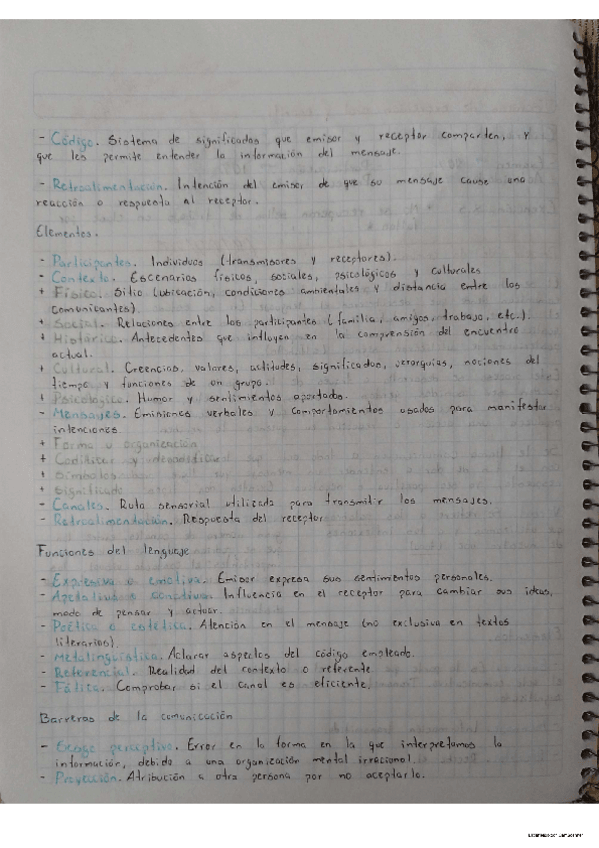 - Código. Sistema de significados que emisor y receptor comparten, y
que les permite entender la información del mensaje.
- Retroalimentación. Intención del emisor de que su mensaje cause una
reacción o respuesta al receptor.
Elementos.
- Participantes. Individuos (transmisores y receptores).
- Contexto. Escenarios físicos, sociales, psicológicos y culturales
+ Físico. Sitio (ubicación, condiciones ambientales y distancia entre los
comunicantes).
+ Social. Relaciones entre los participantes (familia, amigos, trabajo, etc.).
+ Histórico. Antecedentes que influyen en la comprensión del encuentro
actual.
+ Cultural. Creencias, valores, actitudes, significados, jerarquías, nociones del
tiempo y funciones de un grupo.
+ Psicológico. Humor y sentimientos aportados.
- Mensajes. Emisiones verbales y comportamientos usados para manifestar
intenciones.
+ Forma u organización
+ Codificar y
+ Símbolos
+ Significado
- Canales. Ruta sensorial utilizada para transmitir los mensajes.
- Retroalimentación. Respuesta del receptor
Funciones del lenguaje
- Expresiva o emotiva. Emisor expresa sus sentimientos personales.
- Apelativa o conativa. Influencia en el receptor para cambiar sus ideas,
modo de pensar y actuar.
- Poética o estética. Atención en el mensaje (no exclusiva en textos
literarios).
- Metalingüística. Aclarar aspectos del código empleado.
- Referencial. Realidad del contexto o referente
- Fática. Comprobar si el canal es eficiente.
Barreras de la comunicación
- Sesgo perceptivo. Error en la forma en la que interpretamos la
información, debido a una organización mental irracional.
- Proyección. Atribución a otra persona por no aceptarlo.